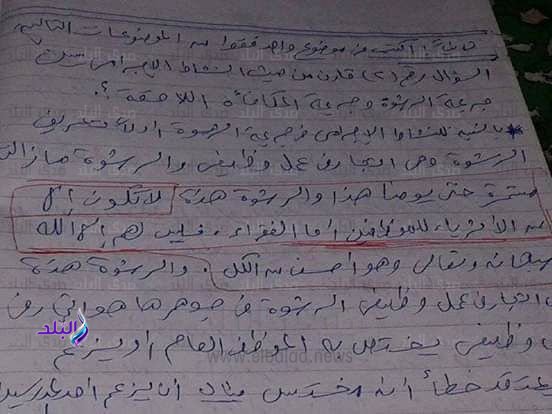 ثانياً: أكتب في موضوع واحد فقط من الموضوعات التالية
السؤال رقم (٢) قارن من حيث النشاط الإجرامى بين
جريمة الرشوة وجريمة المكافأة اللاحقة؟
بالنسبه للنشاط الإجرامى فى جريمة الرشوة أولاً تعريف
الرشوة وهى اتجار فى عمل وظيفى والرشوة مازالت
مستمرة حتى يومنا هذا والرشوة هذة لا تكون إلا
من الأثرياء للموظفين أما الفقراء فليس لهم إلا الله
سبحانه وتعالى وهو أحسن من الكل. والرشوة هذة
اتجار فى عمل وظيفى الرشوة فى جوهرها هو اتجار فى
وظيفى يختص به الموظف العام أو يزعم
يعتقد خطأ أنه مختص مثال أن يزعم أحد
البلد
www.elbalad.news
صدى البلد